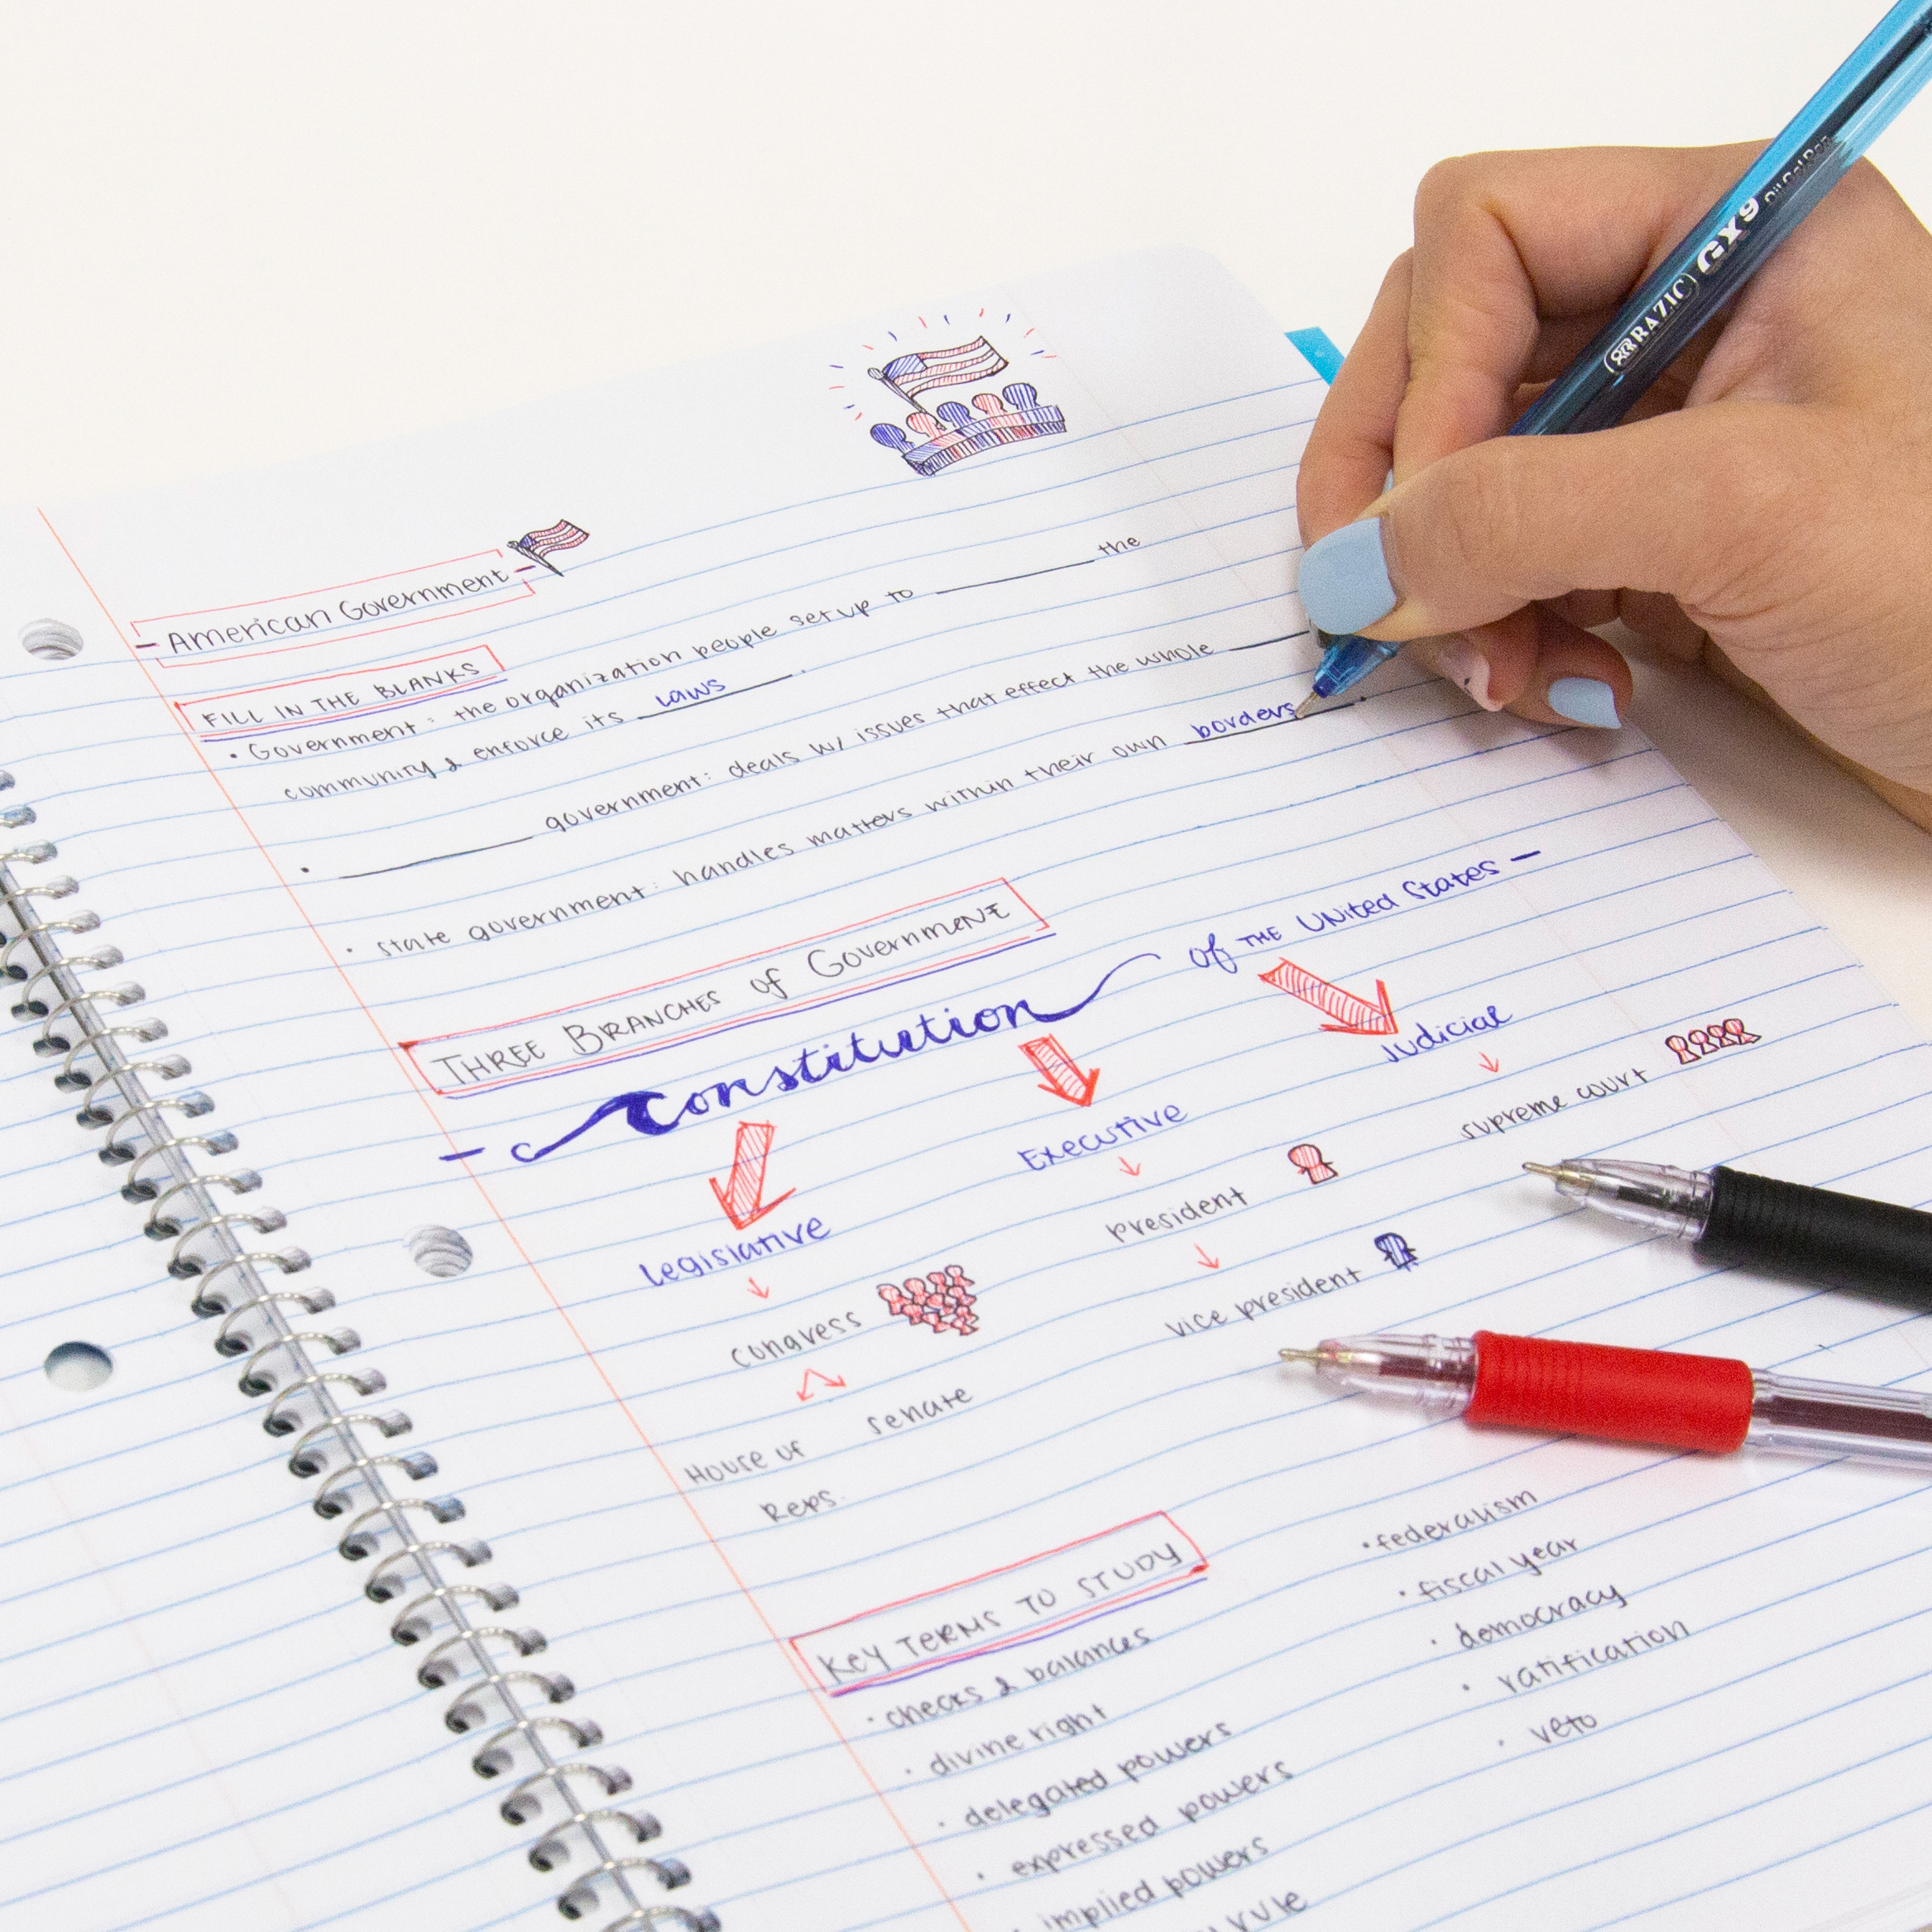 American Government
FILL IN THE BLANKS
• Government: the organization people set up to ________ the
community & enforce its laws.
• ________ government: deals w/ issues that effect the whole ____
• state government: handles matters within their own borders.
THREE BRANCHES of GOVERNMENT
- Constitution of THE UNITED STATES -
Legislative
Executive
Judicial
congress
president
supreme court
vice president
House of
Reps.
senate
KEY TERMS TO STUDY
• checks & balances
• divine right
• delegated powers
• expressed powers
• implied powers
rule
• federalism
• fiscal year
• democracy
• ratification
• veto
RAZIC GX9